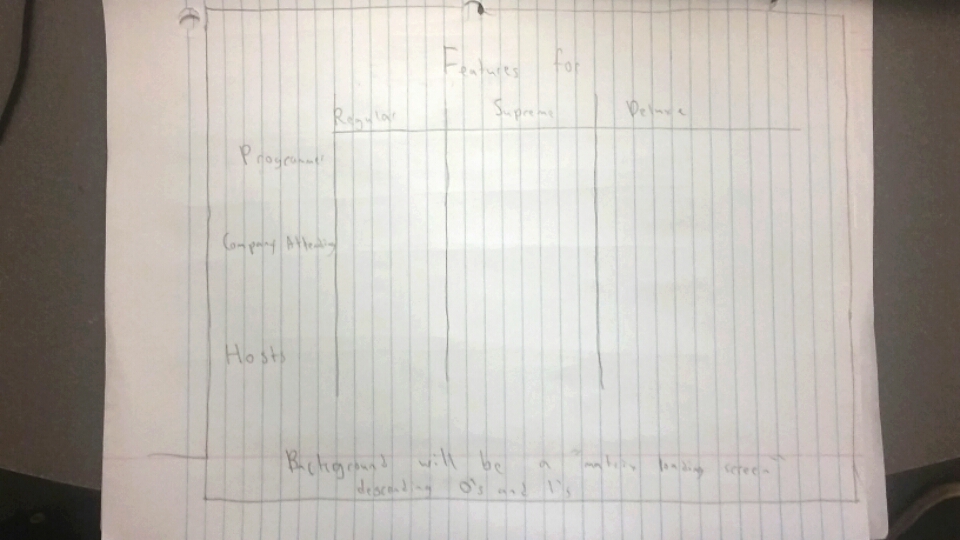 Features for
Regular Supreme Deluxe
Programmer
Company Attending
Hosts
Background will be a "matrix loading screen"
descending 0's and 1's